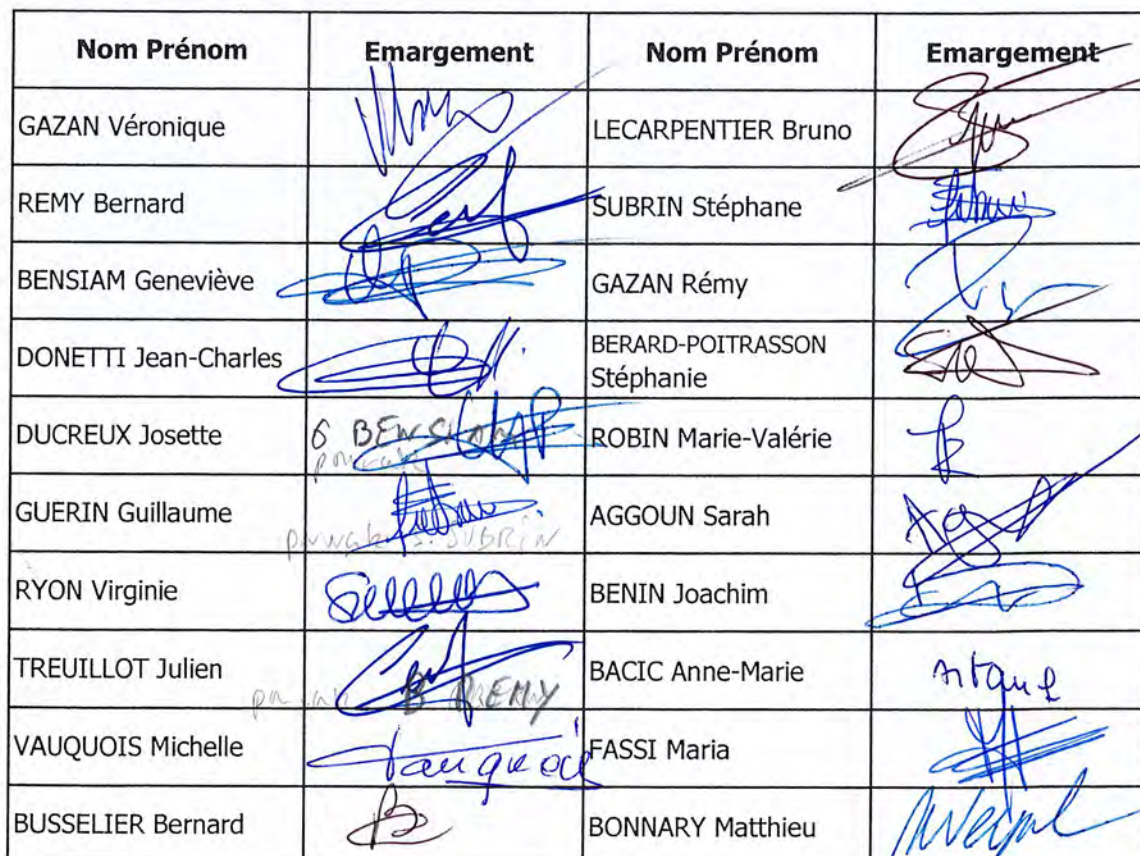 Nom Prénom Emargement Nom Prénom Emargement
GAZAN Véronique LECARPENTIER Bruno
REMY Bernard SUBRIN Stéphane
BENSIAM Geneviève GAZAN Rémy
DONETTI Jean-Charles BERARD-POITRASSON
Stéphanie
DUCREUX Josette G BENSIAM ROBIN Marie-Valérie
GUERIN Guillaume AGGOUN Sarah
S. SUBRIN
RYON Virginie BENIN Joachim
TREUILLOT Julien BACIC Anne-Marie
B REMY
VAUQUOIS Michelle Vauquois FASSI Maria
BUSSELIER Bernard BONNARY Matthieu